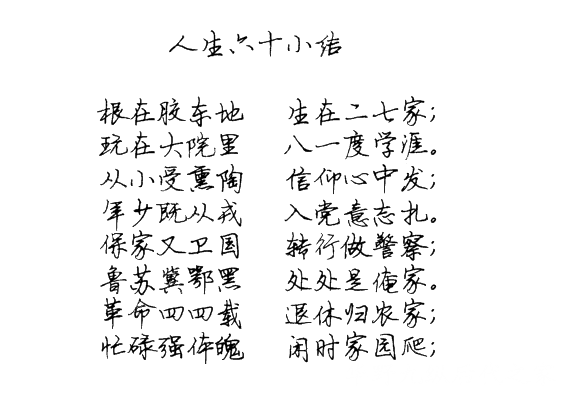 人生六十小结
根在胶东地 生在二七家;
玩在大院里 八一度学涯。
从小受熏陶 信仰心中发;
年少既从戎 入党意志扎。
保家又卫国 转行做警察;
鲁苏冀鄂黑 处处是俺家。
革命四四载 退休归农家;
忙碌强体魄 闲时家园爬;